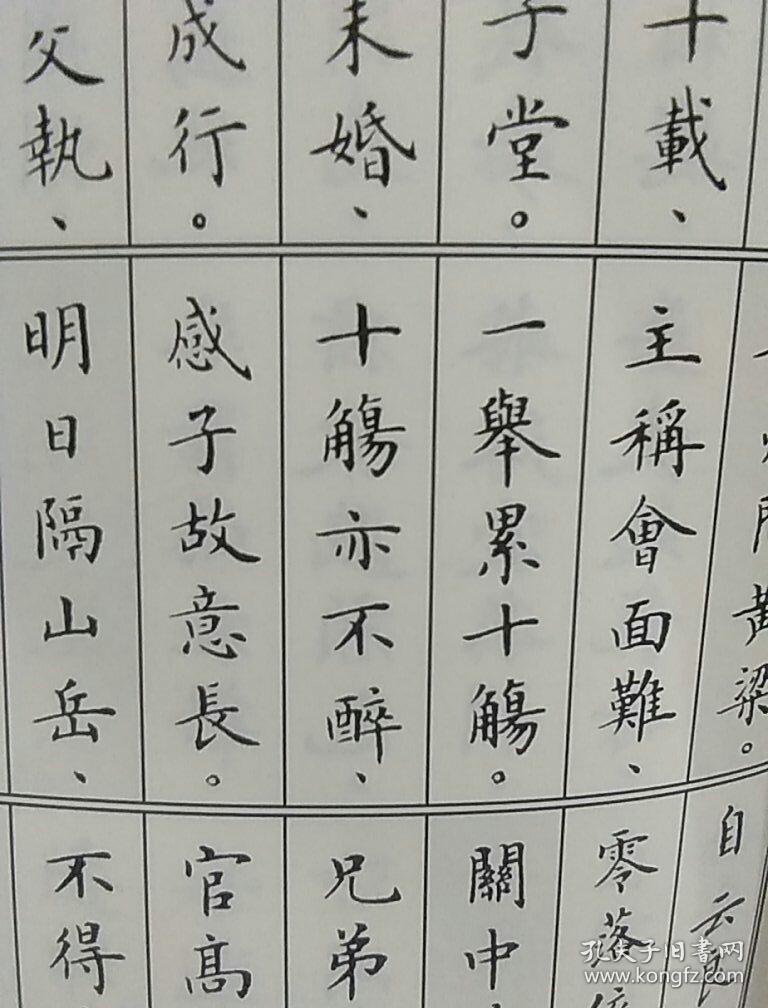 十載、
子堂。
未婚、
成行。
父執、
黃粱。
主稱會面難、
一舉累十觴。
十觴亦不醉、
感子故意長。
明日隔山岳、
自云
零落
關中
兄弟
官高
不得
孔夫子旧書网
www.kongfz.com